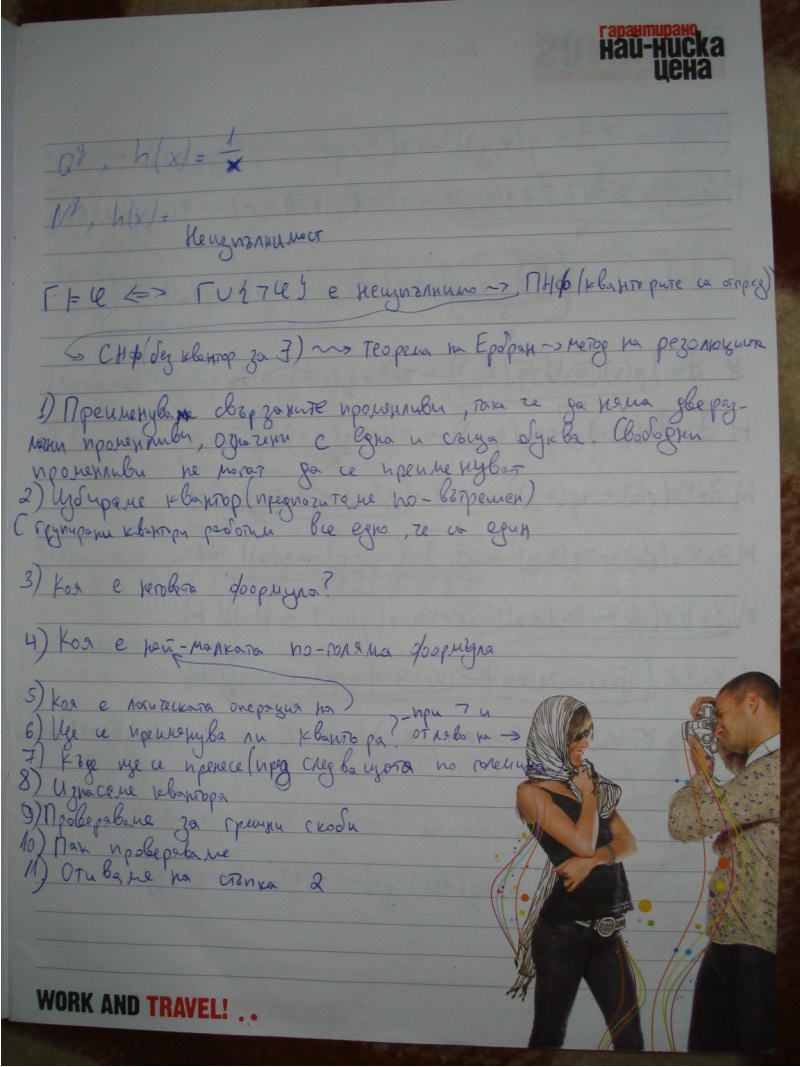 гарантирано
най-ниска
цена
h(x) = 1/x
h(x) =
Неизпълнимост
Γ ⊨ φ ⟺ Γ ∪ {¬φ} е неизпълнимо ⇝ ПНФ (кванторите са отпред)
↪ СНФ (без квантор за ∃) ⇝ теорема на Ербран → метод на резолюцията
1) Преименуваме свързаните променливи, така че да няма две раз-
лични променливи, означени с една и съща буква. Свободни
променливи не могат да се преименуват
2) Избираме квантор (предпочитаме по-вътрешен)
С групирани квантори работим все едно, че са един
3) Коя е неговата формула?
4) Коя е най-малката по-голяма формула
5) Коя е логическата операция на
6) Ще се променява ли квантора? - при ¬ и
отляво на →
7) Къде ще се пренесе (пред следващата по големина
8) Изнасяме квантора
9) Проверяваме за грешни скоби
10) Пак проверяваме
11) Отиваме на стъпка 2
WORK AND TRAVEL!..